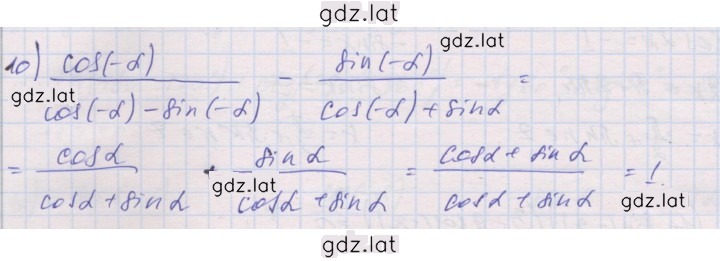 gdz.lat
10) cos(-α) / cos(-α) - sin(-α) - sin(-α) / cos(-α) + sinα =
gdz.lat
gdz.lat
= cosα / cosα + sinα + sinα / cosα + sinα = cosα + sinα / cosα + sinα = 1.
gdz.lat
gdz.lat
gdz.lat